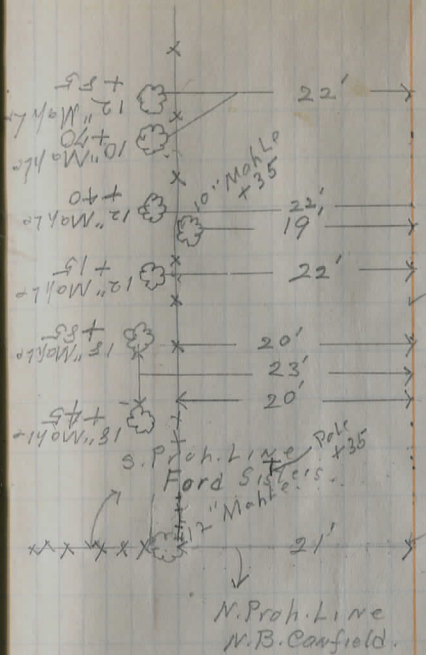 + 85
12" Mahle
22'
+ 70
10" Mahle
10" Mahle
+ 35
+ 40
12" Mahle
22'
19'
+ 15
12" Mahle
22'
+ 85
18" Mahle
20'
23'
20'
+ 45
18" Mahle
S. Proh. Line
Ford Sisters.
Pole
+ 35
12" Mahle.
21'
N. Proh. Line
N. B. Canfield.